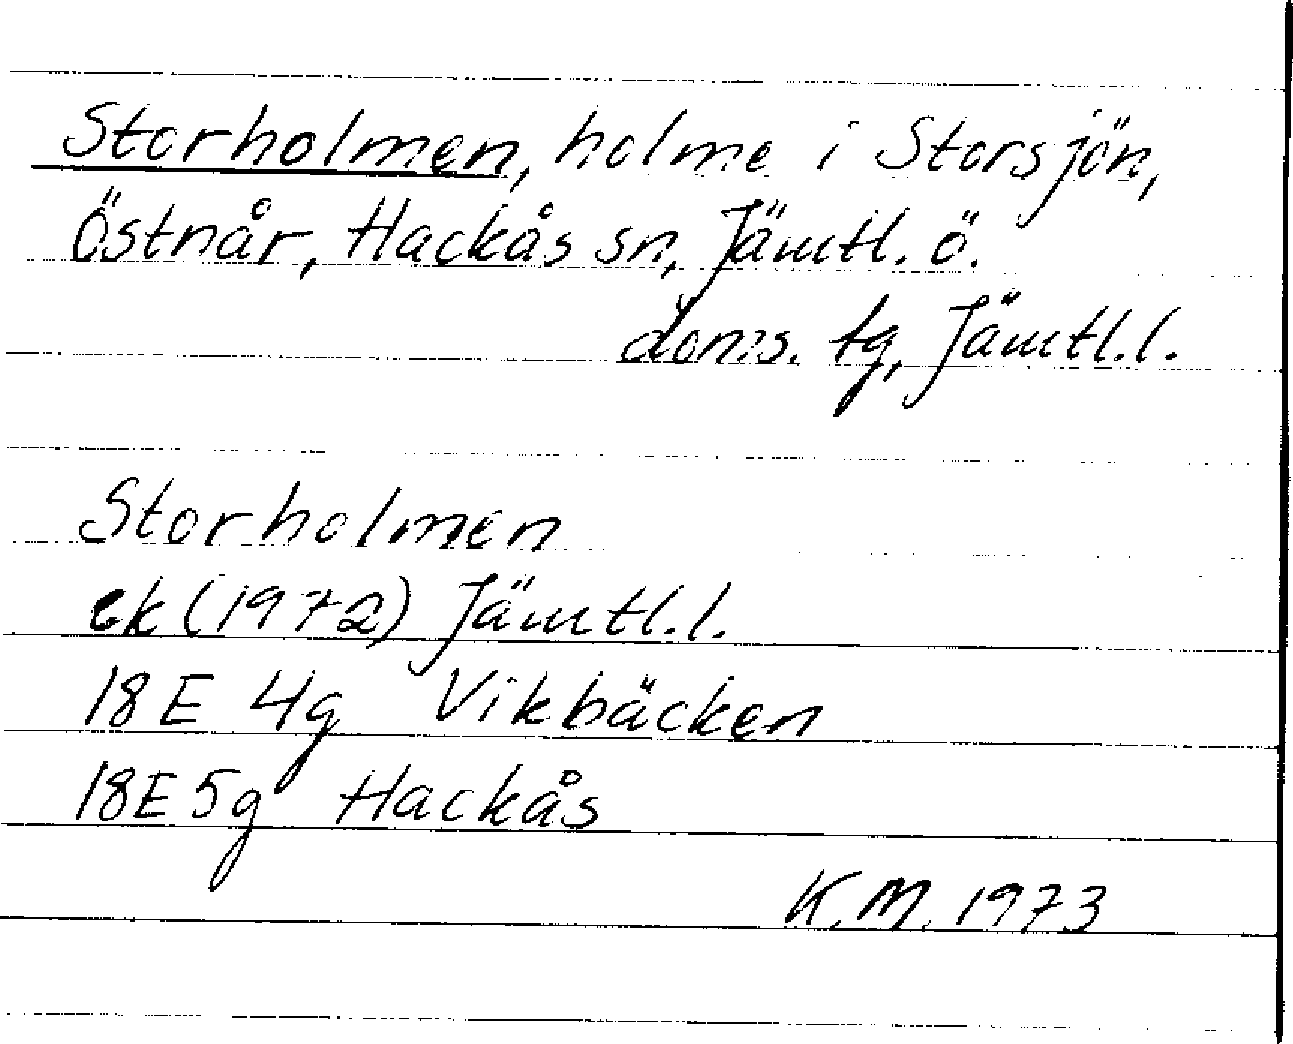 Storholmen, holme i Storsjön,
Östnår, Hackås sn, Jämtl. ö.
doms. tg, Jämtl. l.
Storholmen
ek (1972) Jämtl. l.
18E 4g Vikbäcken
18E 5g Hackås
K. M. 1973